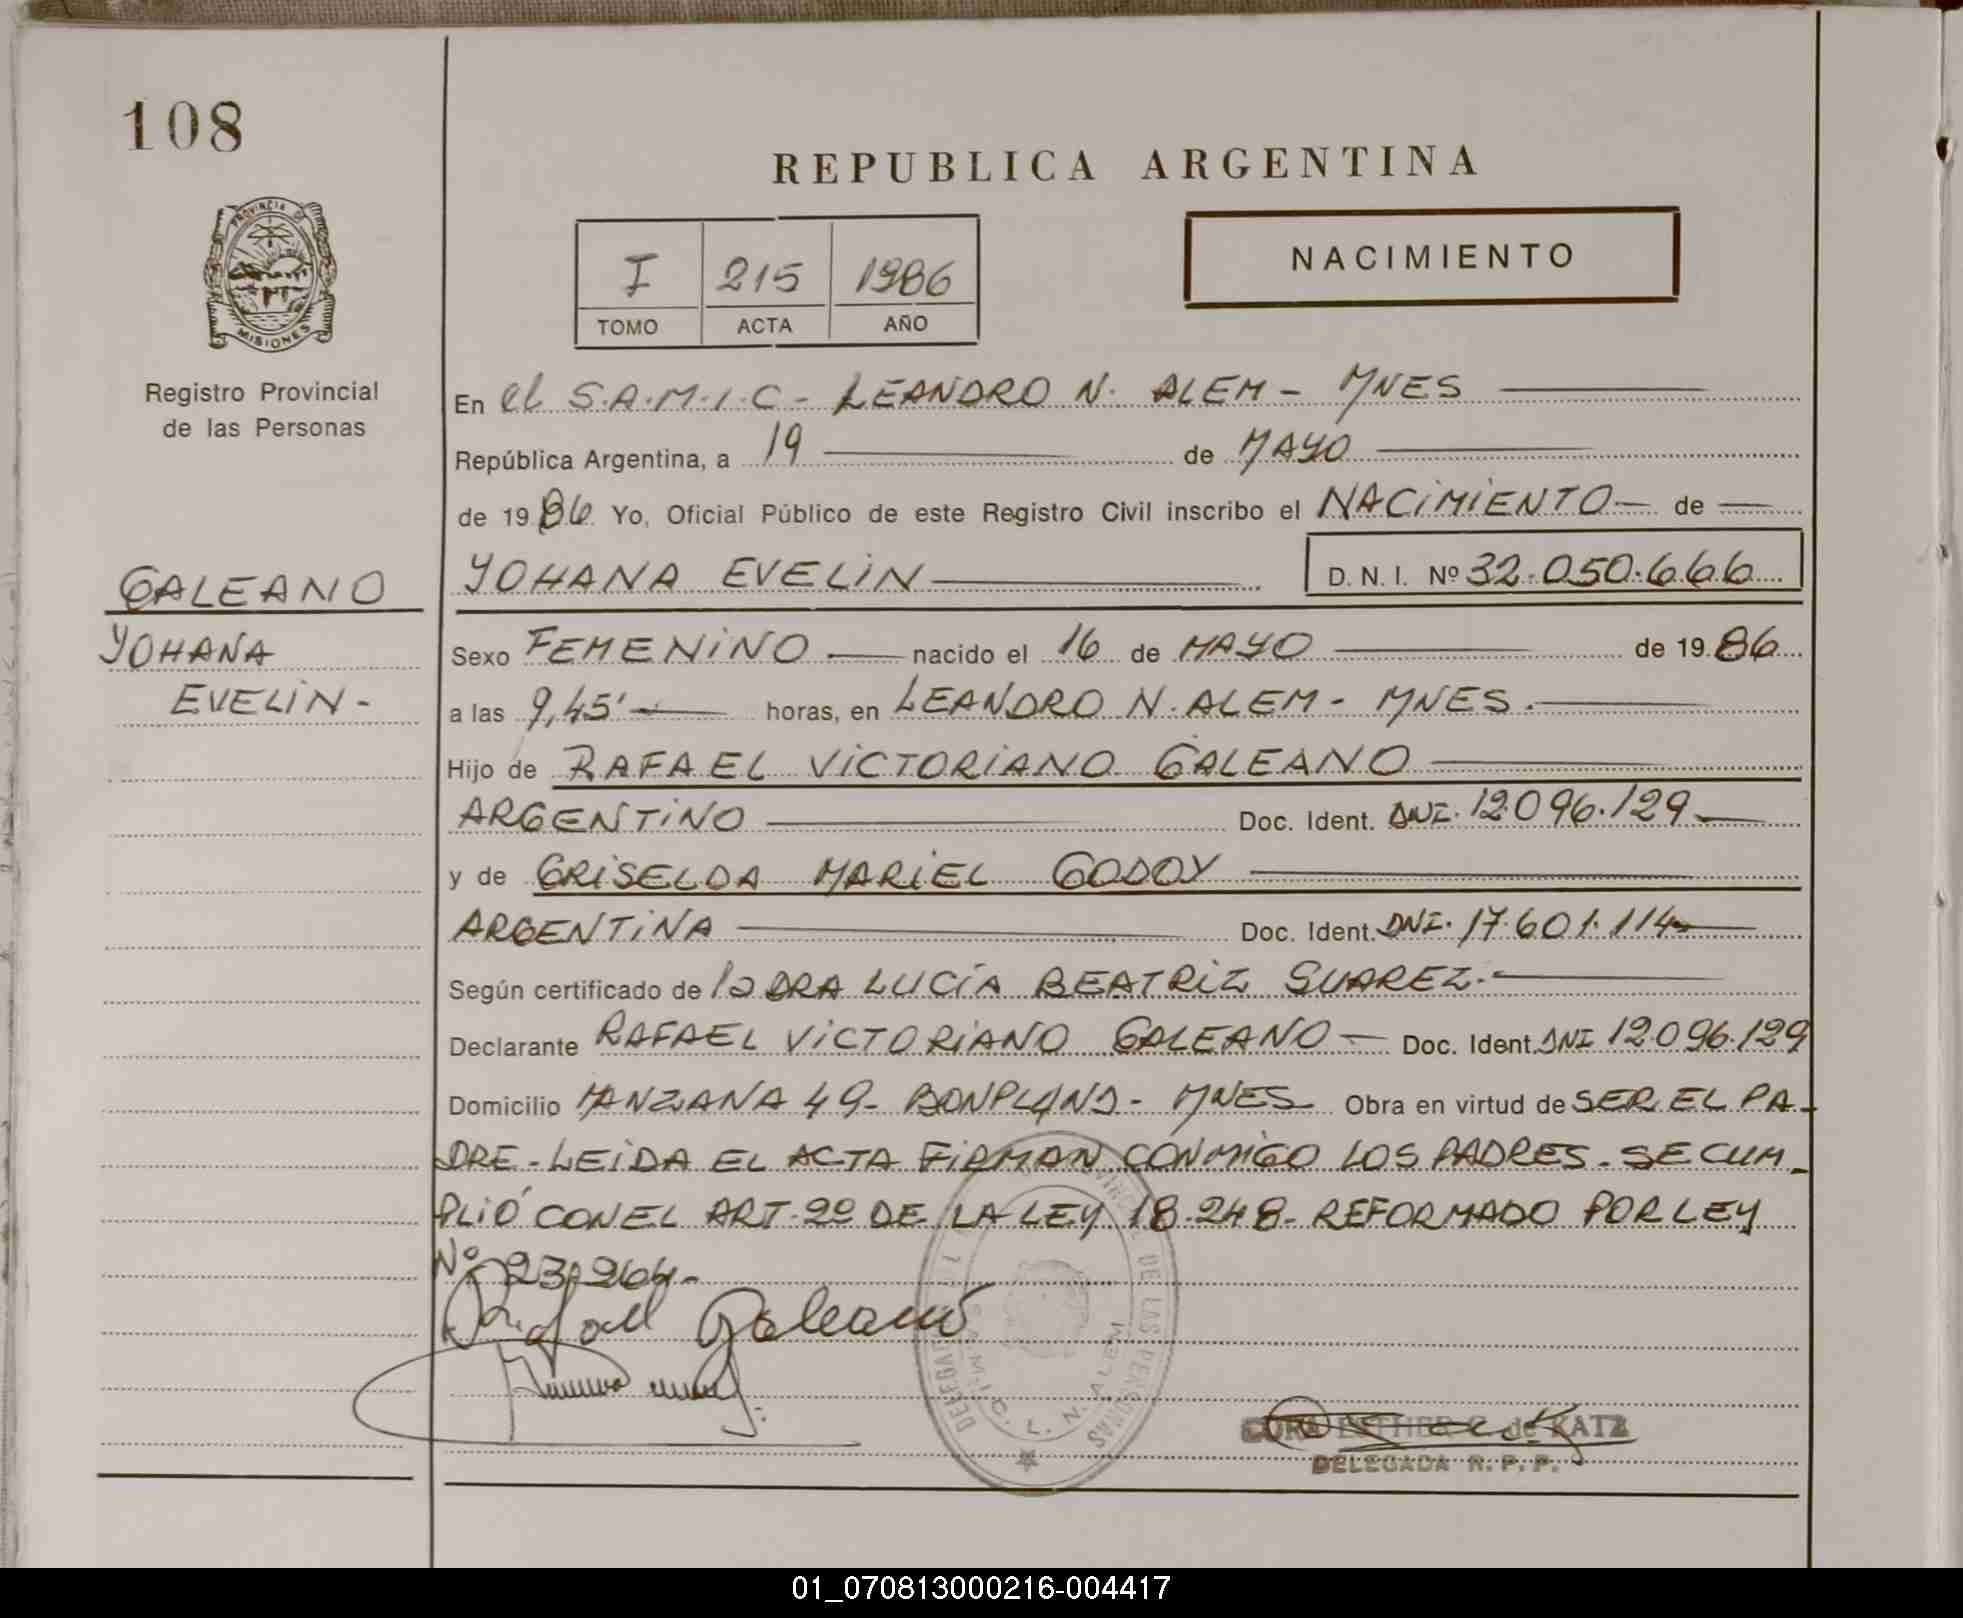 108
REPUBLICA ARGENTINA
PROVINCIA DE
MISIONES
I 215 1986
TOMO ACTA AÑO
NACIMIENTO
Registro Provincial
de las Personas
En el S.A.M.I.C - LEANDRO N. ALEM - MNES
República Argentina, a 19 de MAYO
de 1986 Yo, Oficial Público de este Registro Civil inscribo el NACIMIENTO de
GALEANO
YOHANA EVELIN D. N. I. Nº 32.050.666
YOHANA
EVELIN -
Sexo FEMENINO nacido el 16 de MAYO de 1986
a las 9,45' horas, en LEANDRO N. ALEM - MNES.
Hijo de RAFAEL VICTORIANO GALEANO
ARGENTINO Doc. Ident. DNI. 12.096.129
y de GRISELDA MARIEL GODOY
ARGENTINA Doc. Ident. DNI. 17.601.114
Según certificado de la DRA LUCÍA BEATRIZ SUAREZ.
Declarante RAFAEL VICTORIANO GALEANO Doc. Ident. DNI 12.096.129
Domicilio MANZANA 49 - BONPLAND - MNES Obra en virtud de SER EL PA-
DRE - LEIDA EL ACTA FIRMAN CONMIGO LOS PADRES. SE CUM-
PLIÓ CON EL ART. 2º DE LA LEY 18.248 - REFORMADO POR LEY
Nº 23.264 -
Rafael Galeano
DE LAS PERSONAS
S.A.M.I.C. L. N. ALEM
CORA ESTHER de KATZ
DELEGADA R. P. P.
01_070813000216-004417